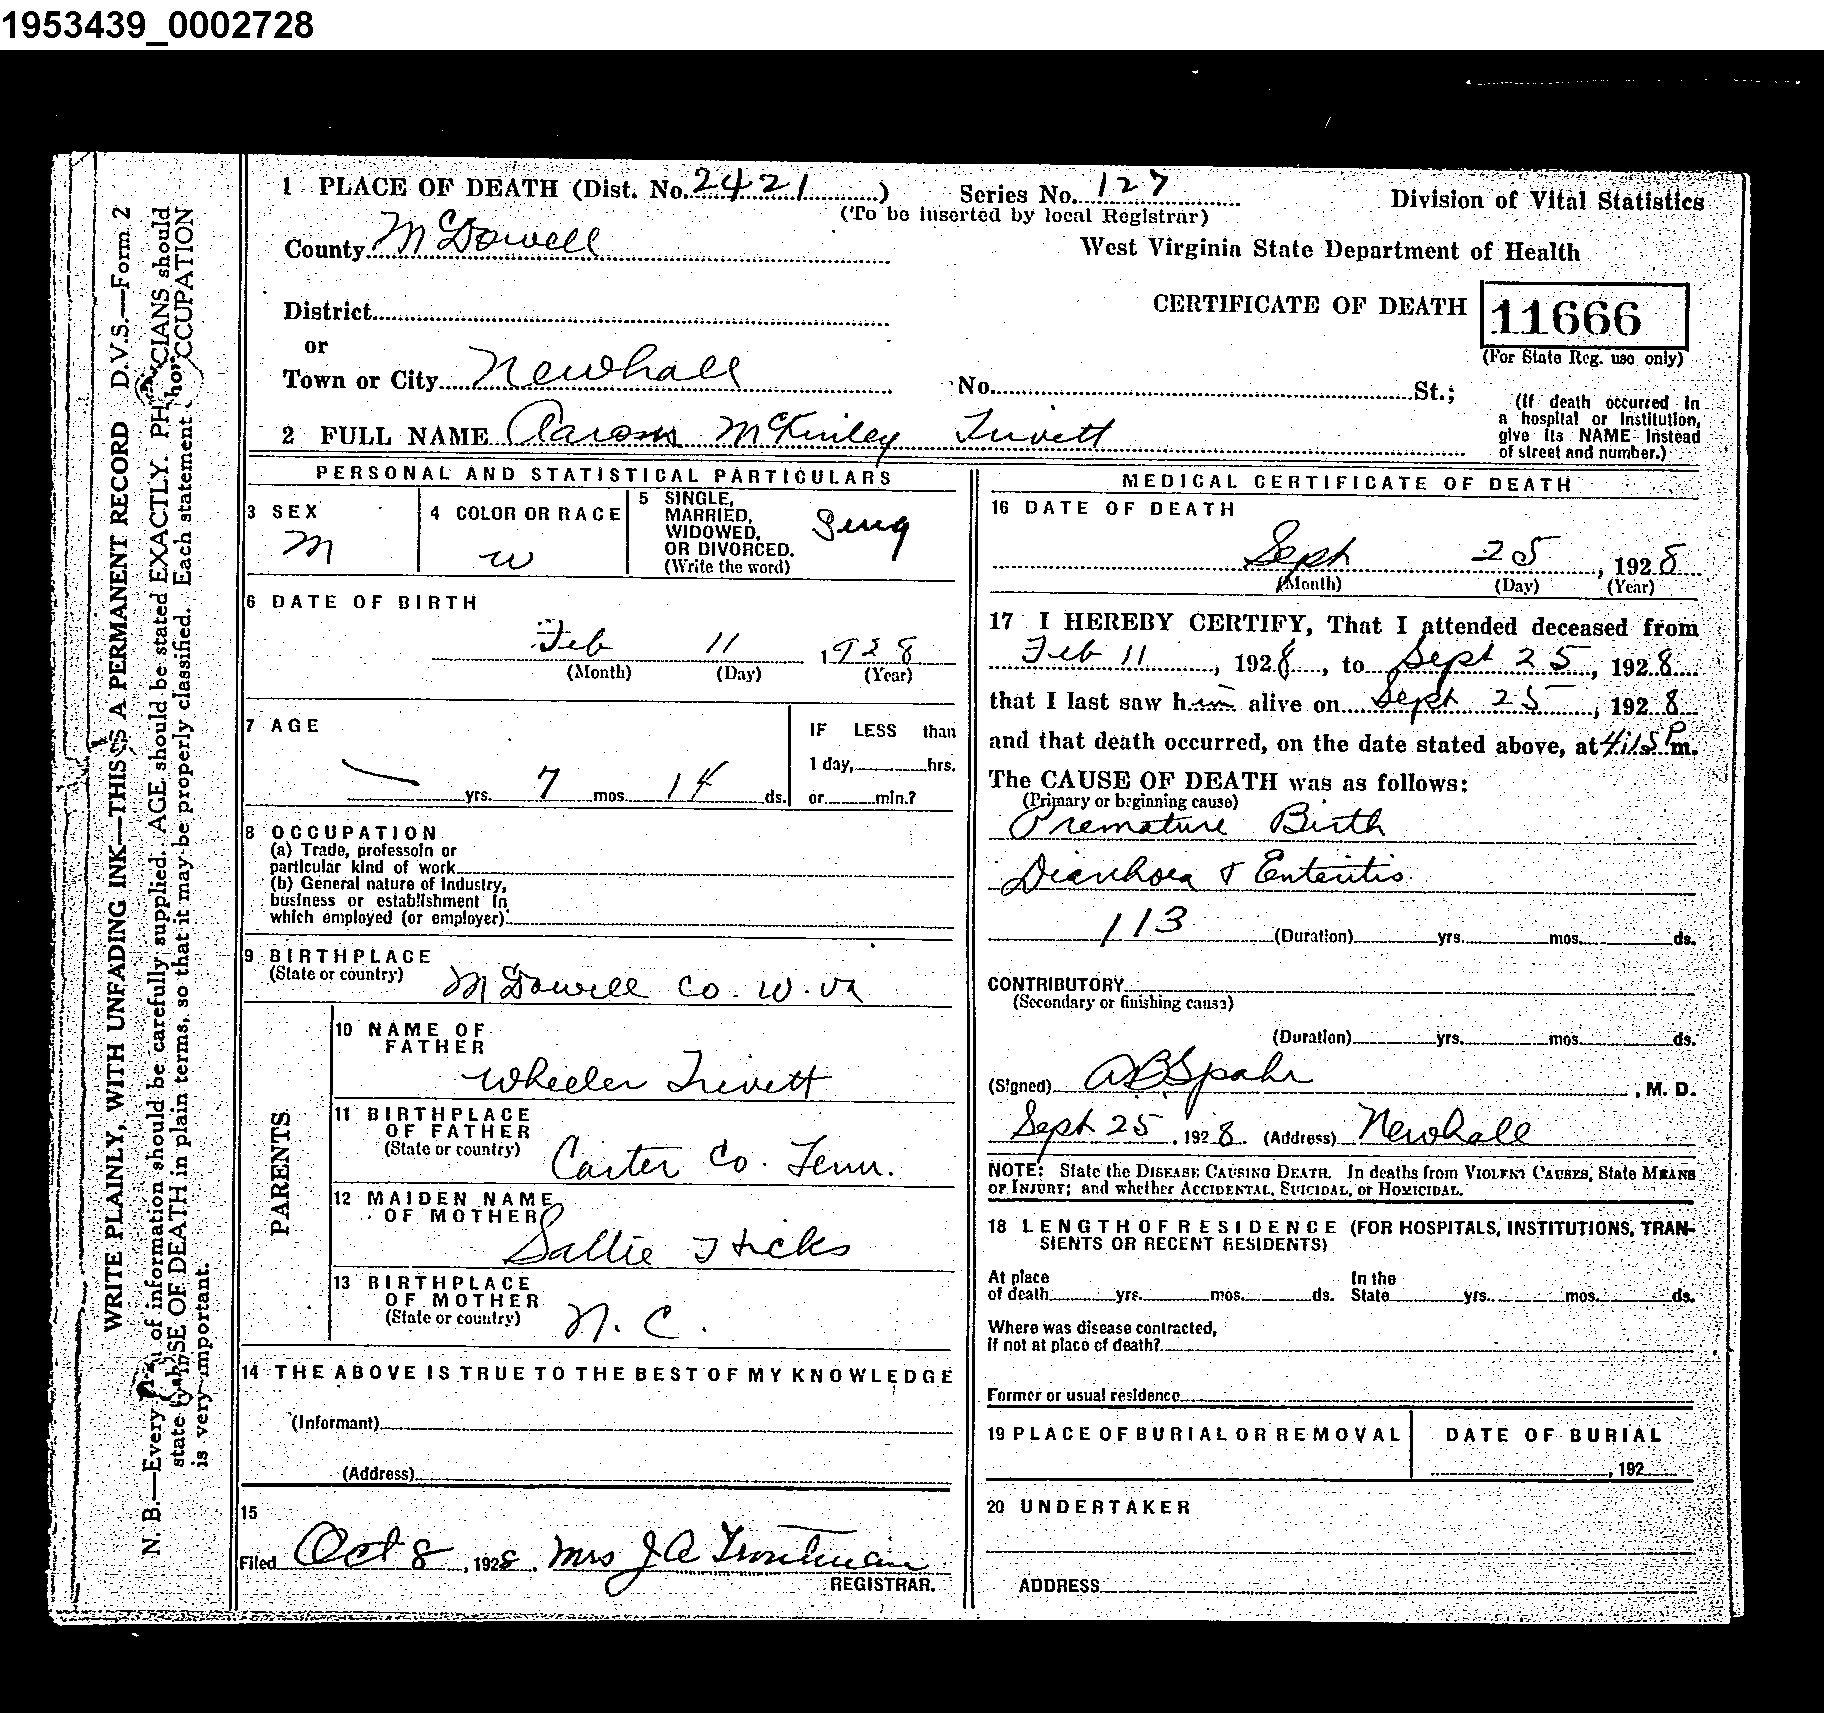 1953439_0002728
1 PLACE OF DEATH (Dist. No. 2421) Series No. 127 Division of Vital Statistics
(To be inserted by local Registrar)
County McDowell West Virginia State Department of Health
District CERTIFICATE OF DEATH 11666
or (For State Reg. use only)
Town or City Newhall No. St.;
(If death occurred in
a hospital or institution,
give its NAME instead
of street and number.)
2 FULL NAME McKinley Trivett
PERSONAL AND STATISTICAL PARTICULARS
3 SEX
M
4 COLOR OR RACE
W
5 SINGLE,
MARRIED,
WIDOWED,
OR DIVORCED.
(Write the word)
Sing
6 DATE OF BIRTH
Feb 11 1928
(Month) (Day) (Year)
7 AGE
yrs. 7 mos. 14 ds.
IF LESS than
1 day, hrs.
or min.?
8 OCCUPATION
(a) Trade, professoin or
particular kind of work
(b) General nature of Industry,
business or establishment in
which employed (or employer)
9 BIRTHPLACE
(State or country) McDowell Co. W. Va
PARENTS
10 NAME OF
FATHER
Wheeler Trivett
11 BIRTHPLACE
OF FATHER
(State or country) Carter Co. Tenn.
12 MAIDEN NAME
OF MOTHER
Sallie Hicks
13 BIRTHPLACE
OF MOTHER
(State or country) N. C.
14 THE ABOVE IS TRUE TO THE BEST OF MY KNOWLEDGE
(Informant)
(Address)
15
Filed Oct 8, 1928, Mrs J A Troutman
REGISTRAR.
MEDICAL CERTIFICATE OF DEATH
16 DATE OF DEATH
Sept 25, 1928
(Month) (Day) (Year)
17 I HEREBY CERTIFY, That I attended deceased from
Feb 11, 1928, to Sept 25, 1928
that I last saw him alive on Sept 25, 1928
and that death occurred, on the date stated above, at 4:15 P m.
The CAUSE OF DEATH was as follows:
(Primary or beginning cause)
Premature Birth
Diarrhoea & Enteritis
113 (Duration) yrs. mos. ds.
CONTRIBUTORY
(Secondary or finishing cause)
(Duration) yrs. mos. ds.
(Signed) A B Spahr, M. D.
Sept 25, 1928 (Address) Newhall
NOTE: State the DISEASE CAUSING DEATH. In deaths from VIOLENT CAUSES, State MEANS
OF INJURY; and whether ACCIDENTAL, SUICIDAL, or HOMICIDAL.
18 LENGTH OF RESIDENCE (FOR HOSPITALS, INSTITUTIONS, TRAN-
SIENTS OR RECENT RESIDENTS)
At place In the
of death yrs. mos. ds. State yrs. mos. ds.
Where was disease contracted,
if not at place of death?
Former or usual residence
19 PLACE OF BURIAL OR REMOVAL
DATE OF BURIAL
, 192
20 UNDERTAKER
ADDRESS
WRITE PLAINLY, WITH UNFADING INK—THIS IS A PERMANENT RECORD D.V.S.—Form 2
N. B.—Every of information should be carefully supplied. AGE should be stated EXACTLY. PHYSICIANS should
state CAUSE OF DEATH in plain terms, so that it may be properly classified. Each statement OCCUPATION
is very important.